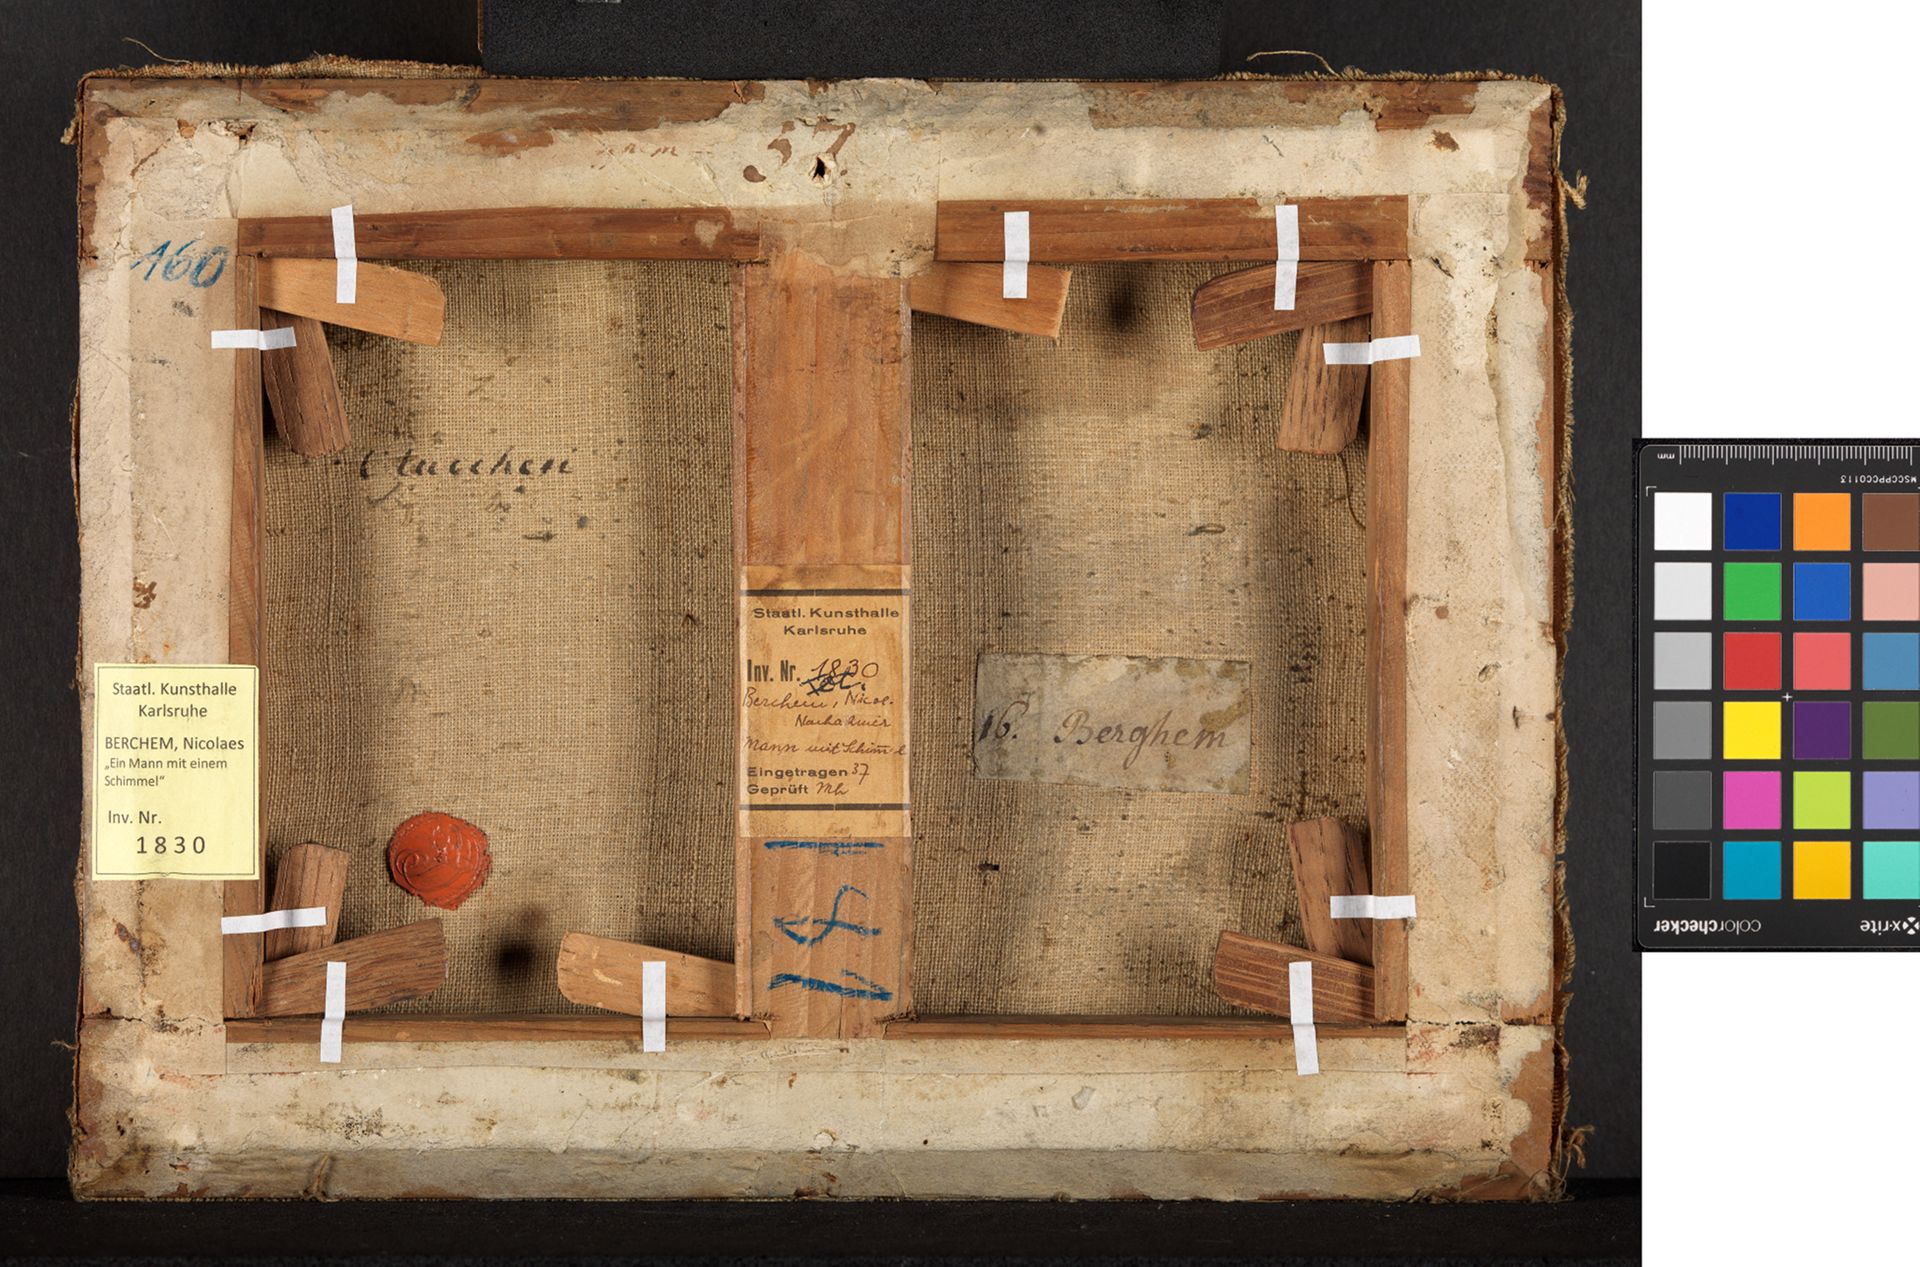 37
160
Staatl. Kunsthalle
Karlsruhe
BERCHEM, Nicolaes
„Ein Mann mit einem
Schimmel“
Inv. Nr.
1830
Staatl. Kunsthalle
Karlsruhe
Inv. Nr. 1830
Berchem, Nicol.
Nachahmer
Mann mit Schimmel
Eingetragen 37
Geprüft
16. Berghem
mm
MSCCPPCC0113
colorchecker
x-rite